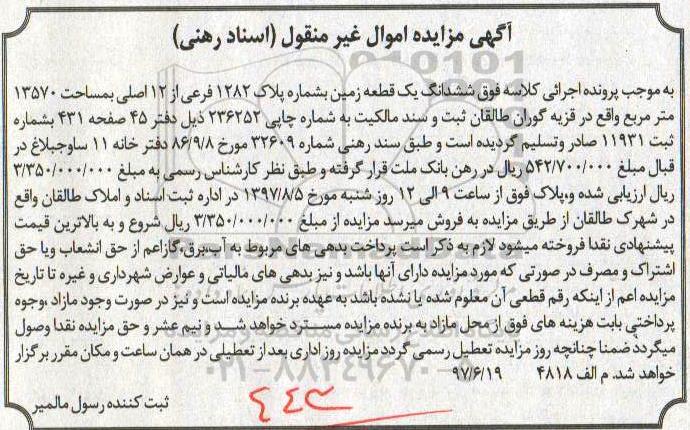 آگهی مزایده اموال غیر منقول (اسناد رهنی)
به موجب پرونده اجرائی کلاسه فوق ششدانگ یک قطعه زمین بشماره پلاک ۱۲۸۲ فرعی از ۱۲ اصلی بمساحت ۱۳۵۷۰
متر مربع واقع در قزیه گوران طالقان ثبت و سند مالکیت به شماره چاپی ۲۳۶۲۵۲ ذیل دفتر ۴۵ صفحه ۴۳۱ بشماره
ثبت ۱۱۹۳۱ صادر وتسلیم گردیده است و طبق سند رهنی شماره ۳۲۶۰۹ مورخ ۸۶/۹/۸ دفتر خانه ۱۱ ساوجبلاغ در
قبال مبلغ ۵۴۲/۷۰۰/۰۰۰ ریال در رهن بانک ملت قرار گرفته و طبق نظر کارشناس رسمی به مبلغ ۳/۳۵۰/۰۰۰/۰۰۰
ریال ارزیابی شده و،پلاک فوق از ساعت ۹ الی ۱۲ روز شنبه مورخ ۱۳۹۷/۸/۵ در اداره ثبت اسناد و املاک طالقان واقع
در شهرک طالقان از طریق مزایده به فروش میرسد مزایده از مبلغ ۳/۳۵۰/۰۰۰/۰۰۰ ریال شروع و به بالاترین قیمت
پیشنهادی نقدا فروخته میشود لازم به ذکر است پرداخت بدهی های مربوط به آب،برق،گازاعم از حق انشعاب ویا حق
اشتراک و مصرف در صورتی که مورد مزایده دارای آنها باشد و نیز بدهی های مالیاتی و عوارض شهرداری و غیره تا تاریخ
مزایده اعم از اینکه رقم قطعی آن معلوم شده یا نشده باشد به عهده برنده مزایده است و نیز در صورت وجود مازاد ،وجوه
پرداختی بابت هزینه های فوق از محل مازاد به برنده مزایده مسترد خواهد شد و نیم عشر و حق مزایده نقدا وصول
میگردد ضمنا چنانچه روز مزایده تعطیل رسمی گردد مزایده روز اداری بعد از تعطیلی در همان ساعت و مکان مقرر برگزار
خواهد شد. م الف ۴۸۱۸ ۹۷/۶/۱۹
ثبت کننده رسول مالمیر
۴۴۳
ParsNamadData
۰۲۱-۸۸۳۴۹۶۷۰